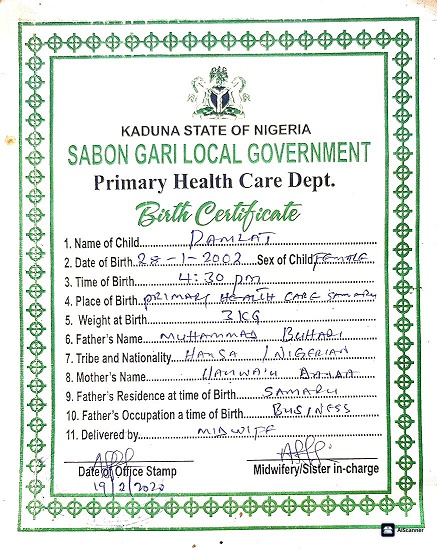 KADUNA STATE OF NIGERIA
SABON GARI LOCAL GOVERNMENT
Primary Health Care Dept.
Birth Certificate
1. Name of Child.....RAMLAT
2. Date of Birth 28-1-2002 Sex of Child FEMALE
3. Time of Birth.....4:30 pm
4. Place of Birth PRIMARY HEALTH CARE SAMARU
5. Weight at Birth.....3KG
6. Father's Name.....MUHAMMAD BUHARI
7. Tribe and Nationality.....HAUSA / NIGERIAN
8. Mother's Name
9. Father's Residence at time of Birth.....SAMARU
10. Father's Occupation a time of Birth.....BUSINESS
11. Delivered by.....MIDWIFE
Date of Office Stamp Midwifery/Sister in-charge
19/2/2020
AIScanner